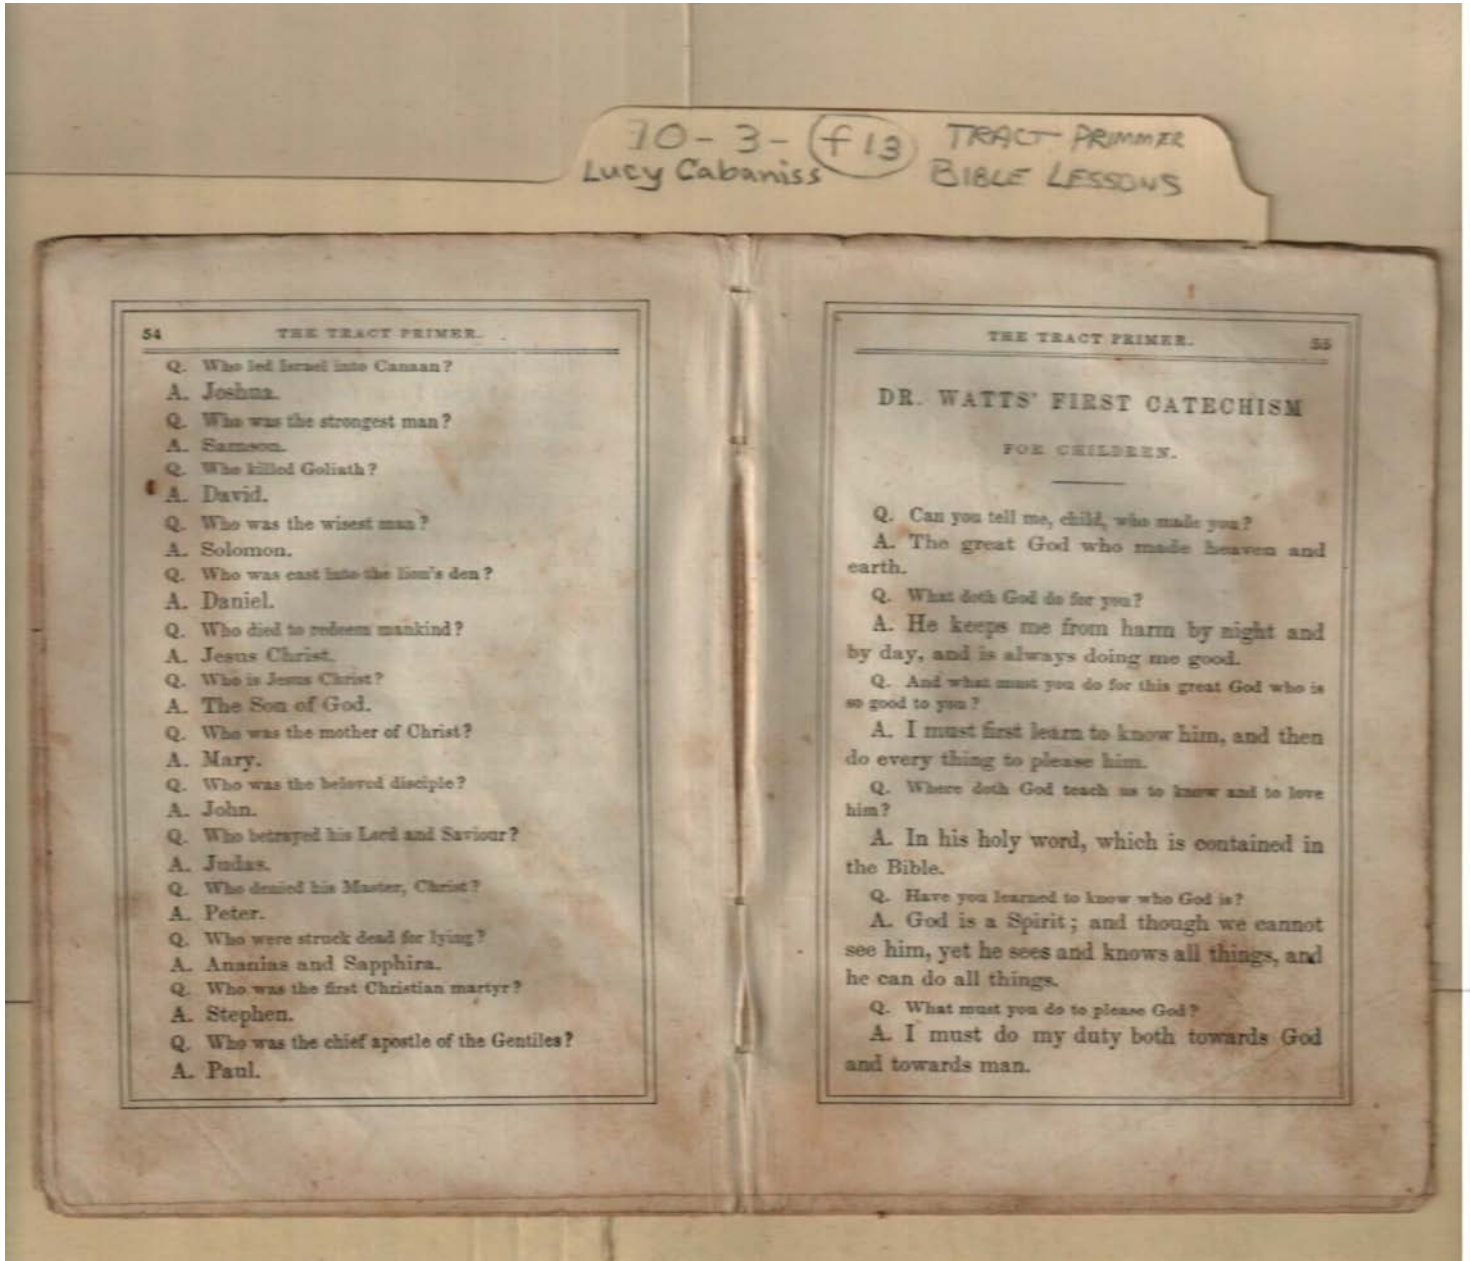 10-3-f13 TRACT PRIMMER
Lucy Cabaniss BIBLE LESSONS
54 THE TRACT PRIMER.
Q. Who led Israel into Canaan?
A. Joshua.
Q. Who was the strongest man?
A. Samson.
Q. Who killed Goliath?
A. David.
Q. Who was the wisest man?
A. Solomon.
Q. Who was cast into the lion's den?
A. Daniel.
Q. Who died to redeem mankind?
A. Jesus Christ.
Q. Who is Jesus Christ?
A. The Son of God.
Q. Who was the mother of Christ?
A. Mary.
Q. Who was the beloved disciple?
A. John.
Q. Who betrayed his Lord and Saviour?
A. Judas.
Q. Who denied his Master, Christ?
A. Peter.
Q. Who were struck dead for lying?
A. Ananias and Sapphira.
Q. Who was the first Christian martyr?
A. Stephen.
Q. Who was the chief apostle of the Gentiles?
A. Paul.
THE TRACT PRIMER. 55
DR. WATTS' FIRST CATECHISM
FOR CHILDREN.
Q. Can you tell me, child, who made you?
A. The great God who made heaven and
earth.
Q. What doth God do for you?
A. He keeps me from harm by night and
by day, and is always doing me good.
Q. And what must you do for this great God who is
so good to you?
A. I must first learn to know him, and then
do every thing to please him.
Q. Where doth God teach us to know and to love
him?
A. In his holy word, which is contained in
the Bible.
Q. Have you learned to know who God is?
A. God is a Spirit; and though we cannot
see him, yet he sees and knows all things, and
he can do all things.
Q. What must you do to please God?
A. I must do my duty both towards God
and towards man.